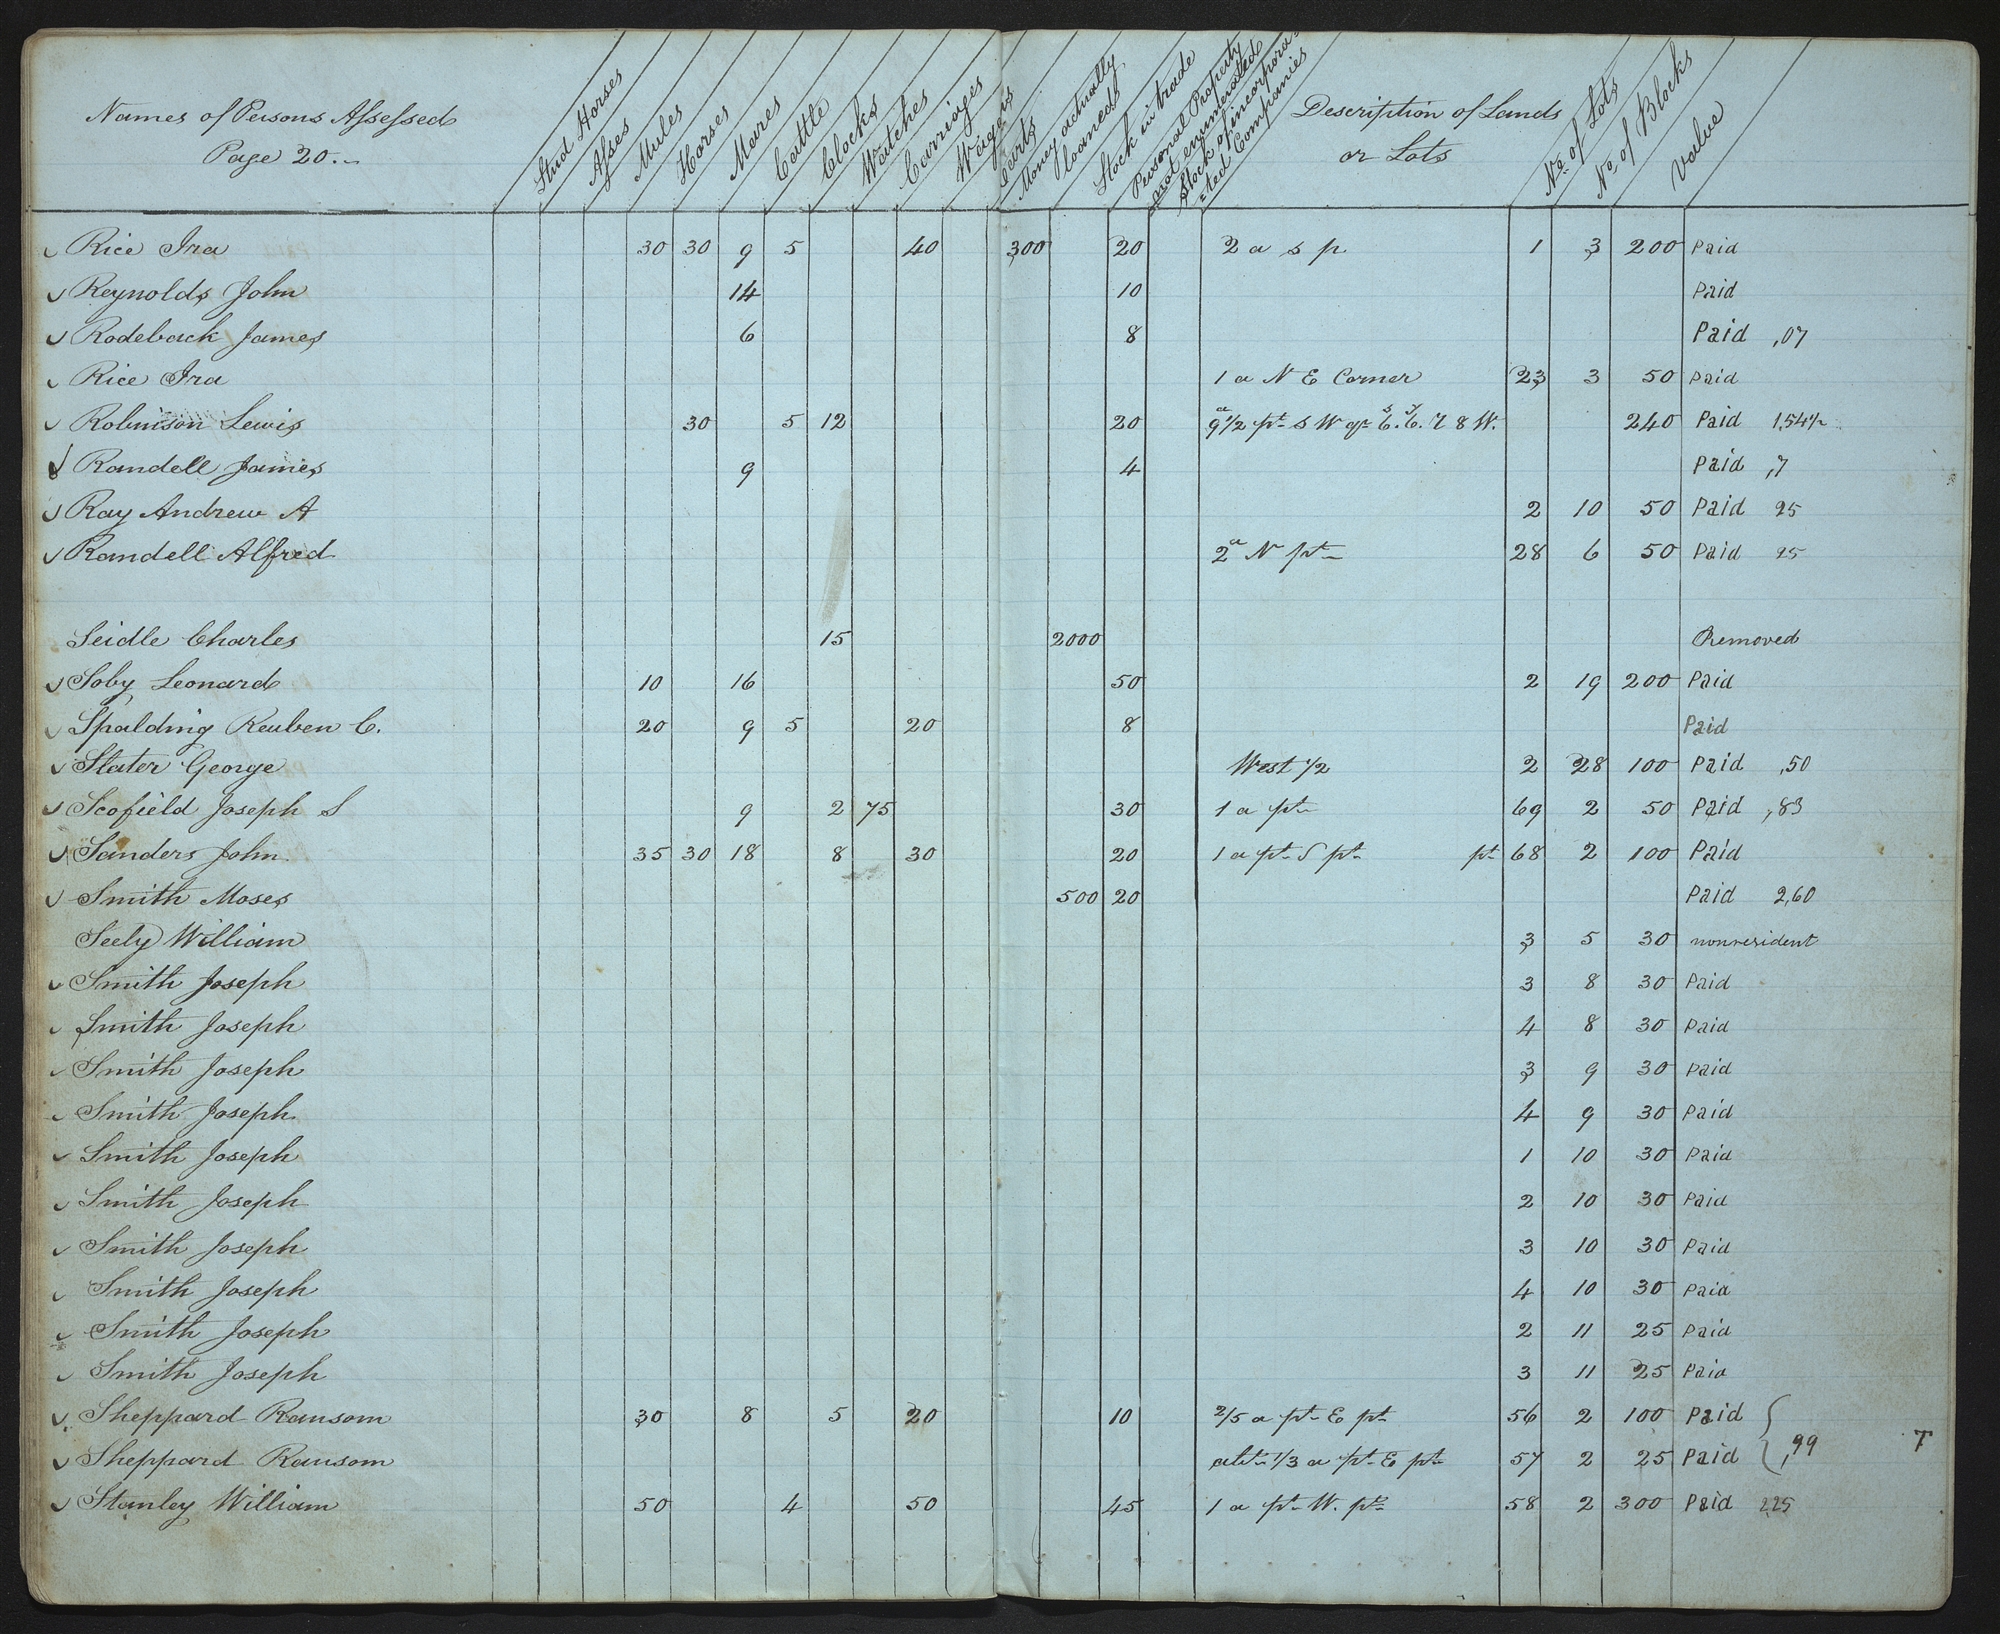 Names of Persons Assessed
Page 20.
Stud Horses
Asses
Mules
Horses
Mares
Cattle
Clocks
Watches
Carriages
Wagons
Carts
Money actually
loaned
Stock in trade
Personal Property
not enumerated
Stock of incorpora=
=ted Companies
Description of Lands
or Lots
No. of Lots
No. of Blocks
Value
Rice Ira 30 30 9 5 40 300 20 2 a s p 1 3 200 Paid
Reynolds John 14 10 Paid
Rodeback James 6 8 Paid ,07
Rice Ira 1 a N E Corner 23 3 50 Paid
Robinson Lewis 30 5 12 20 9 1/2 pt S W qr 6. 6. 7 8 W. 240 Paid 1,54 1/2
Randell James 9 4 Paid ,7
Ray Andrew A 2 10 50 Paid 25
Randell Alfred 2 a N pt 28 6 50 Paid 25
Seidle Charles 15 2000 Removed
Soby Leonard 10 16 50 2 19 200 Paid
Spalding Reuben C. 20 9 5 20 8 Paid
Slater George West 1/2 2 28 100 Paid ,50
Scofield Joseph S 9 2 75 30 1 a pt 69 2 50 Paid ,83
Sanders John 35 30 18 8 30 20 1 a pt S pt pt 68 2 100 Paid
Smith Moses 500 20 Paid 2,60
Seely William 3 5 30 nonresident
Smith Joseph 3 8 30 Paid
Smith Joseph 4 8 30 Paid
Smith Joseph 3 9 30 Paid
Smith Joseph 4 9 30 Paid
Smith Joseph 1 10 30 Paid
Smith Joseph 2 10 30 Paid
Smith Joseph 3 10 30 Paid
Smith Joseph 4 10 30 Paid
Smith Joseph 2 11 25 Paid
Smith Joseph 3 11 25 Paid
Sheppard Ransom 30 8 5 20 10 2/5 a pt E pt 56 2 100 Paid
Sheppard Ransom 1/3 a pt E pt 57 2 25 Paid ,99 T
Stanley William 50 4 50 45 1 a pt W. pt 58 2 300 Paid 2,25